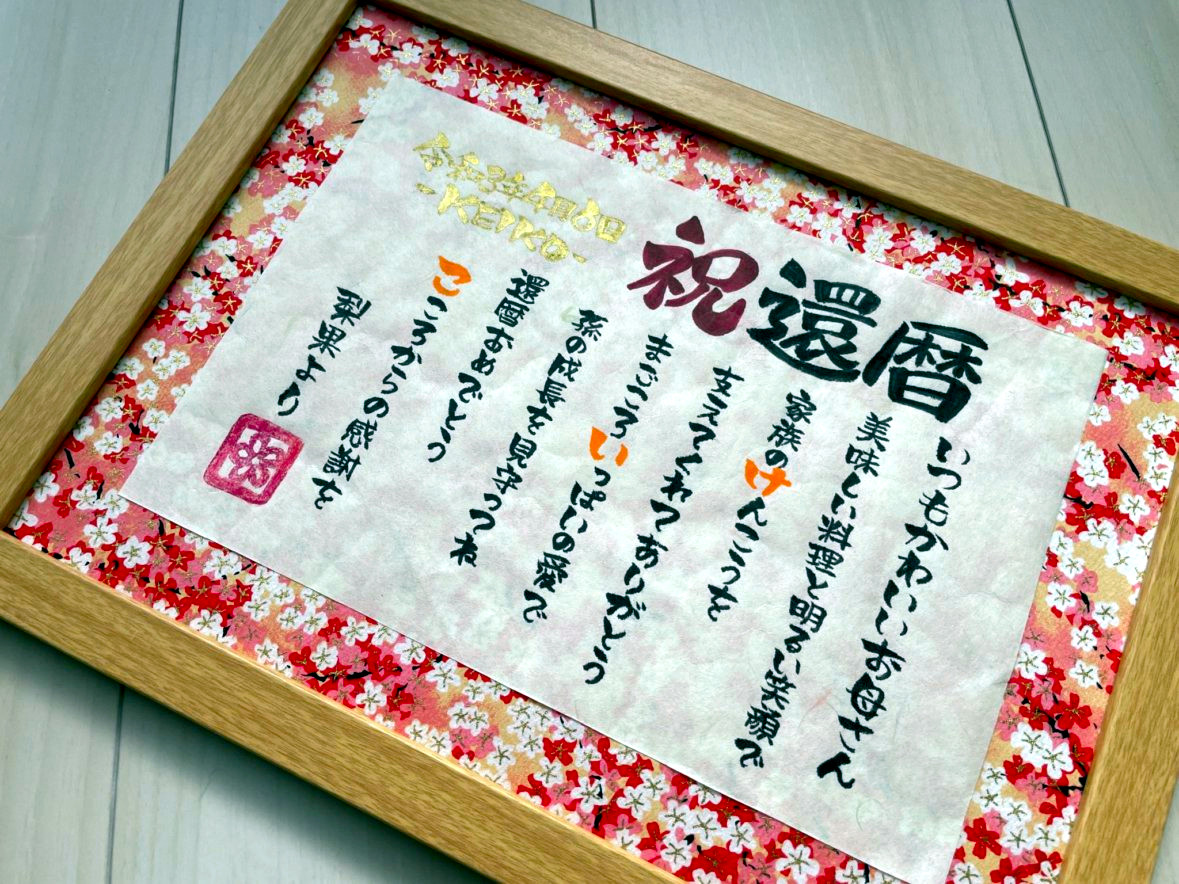 祝還暦
いつもかわいいお母さん
美味しい料理と明るい笑顔で
家族のけんこうを
支えてくれてありがとう
まごころいっぱいの愛で
孫の成長を見守ってね
還暦おめでとう
こころからの感謝を
梨果より
令和3年4月6日
-KEIKO-